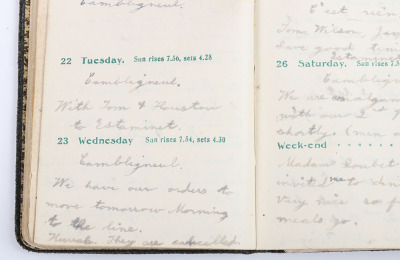 Cambligneul.
22 Tuesday. Sun rises 7.56, sets 4.28
Cambligneul.
With Tom & Houston
to Estaminet.
23 Wednesday Sun rises 7.54, sets 4.30
Cambligneul.
We have our orders to
move tomorrow Morning
to the line.
Hurrah. They are cancelled.
C'est rien
Tom Wilson, Jam
Have good time
Estaminet
26 Saturday. Sun rises 7.5
Cambligne
We are
with our 2
shortly. (men a
Week-end
Madam
invited me to
very nice so f
meals go.